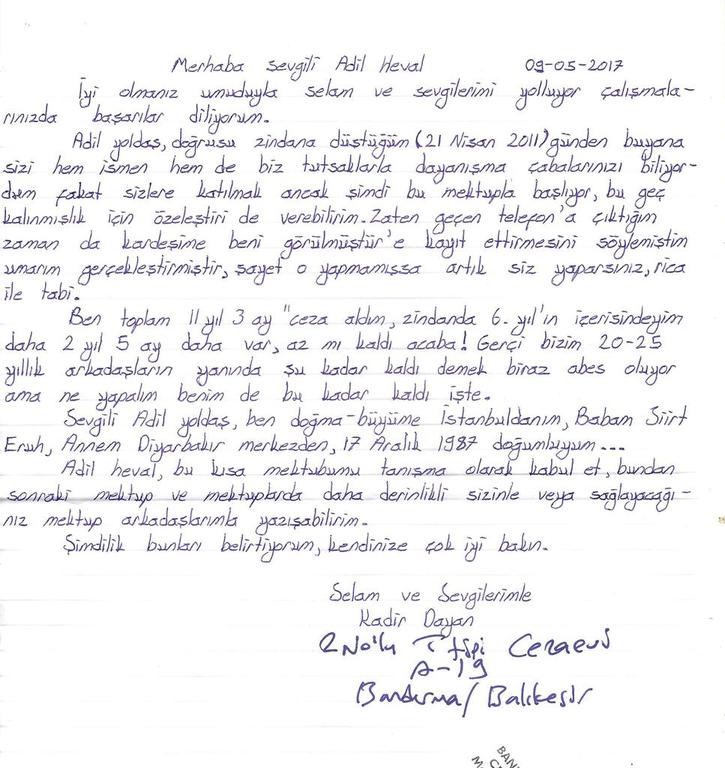 Merhaba sevgili Adil Heval 09-05-2017
İyi olmanız umuduyla selam ve sevgilerimi yolluyor çalışmala-
rınızda başarılar diliyorum.
Adil yoldaş, doğrusu zindana düştüğüm (21 Nisan 2011) günden buyana
sizi hem ismen hem de biz tutsaklarla dayanışma çabalarınızı biliyor-
dum fakat sizlere katılmak ancak şimdi bu mektupla başlıyor, bu geç
kalınmışlık için özeleştiri de verebilirim. Zaten geçen telefon'a çıktığım
zaman da kardeşime beni görülmüştür'e kayıt ettirmesini söylemiştim
umarım gerçekleştirmiştir, şayet o yapmamışsa artık siz yaparsınız, rica
ile tabi.
Ben toplam 11 yıl 3 ay "ceza aldım, zindanda 6. yıl'ın içerisindeyim
daha 2 yıl 5 ay daha var, az mı kaldı acaba! Gerçi bizim 20-25
yıllık arkadaşların yanında şu kadar kaldı demek biraz abes oluyor
ama ne yapalım benim de bu kadar kaldı işte.
Sevgili Adil yoldaş, ben doğma-büyüme İstanbuldanım, Babam Siirt
Eruh, Annem Diyarbakır merkezden, 17 Aralık 1987 doğumluyum...
Adil heval, bu kısa mektubumu tanışma olarak kabul et, bundan
sonraki mektup ve mektuplarda daha derinlikli sizinle veya sağlayacağı-
nız mektup arkadaşlarımla yazışabilirim.
Şimdilik bunları belirtiyorum, kendinize çok iyi bakın.
Selam ve Sevgilerimle
Kadir Dayan
2 No'lu T tipi Cezaevi
A-19
Bandırma/Balıkesir
BAN